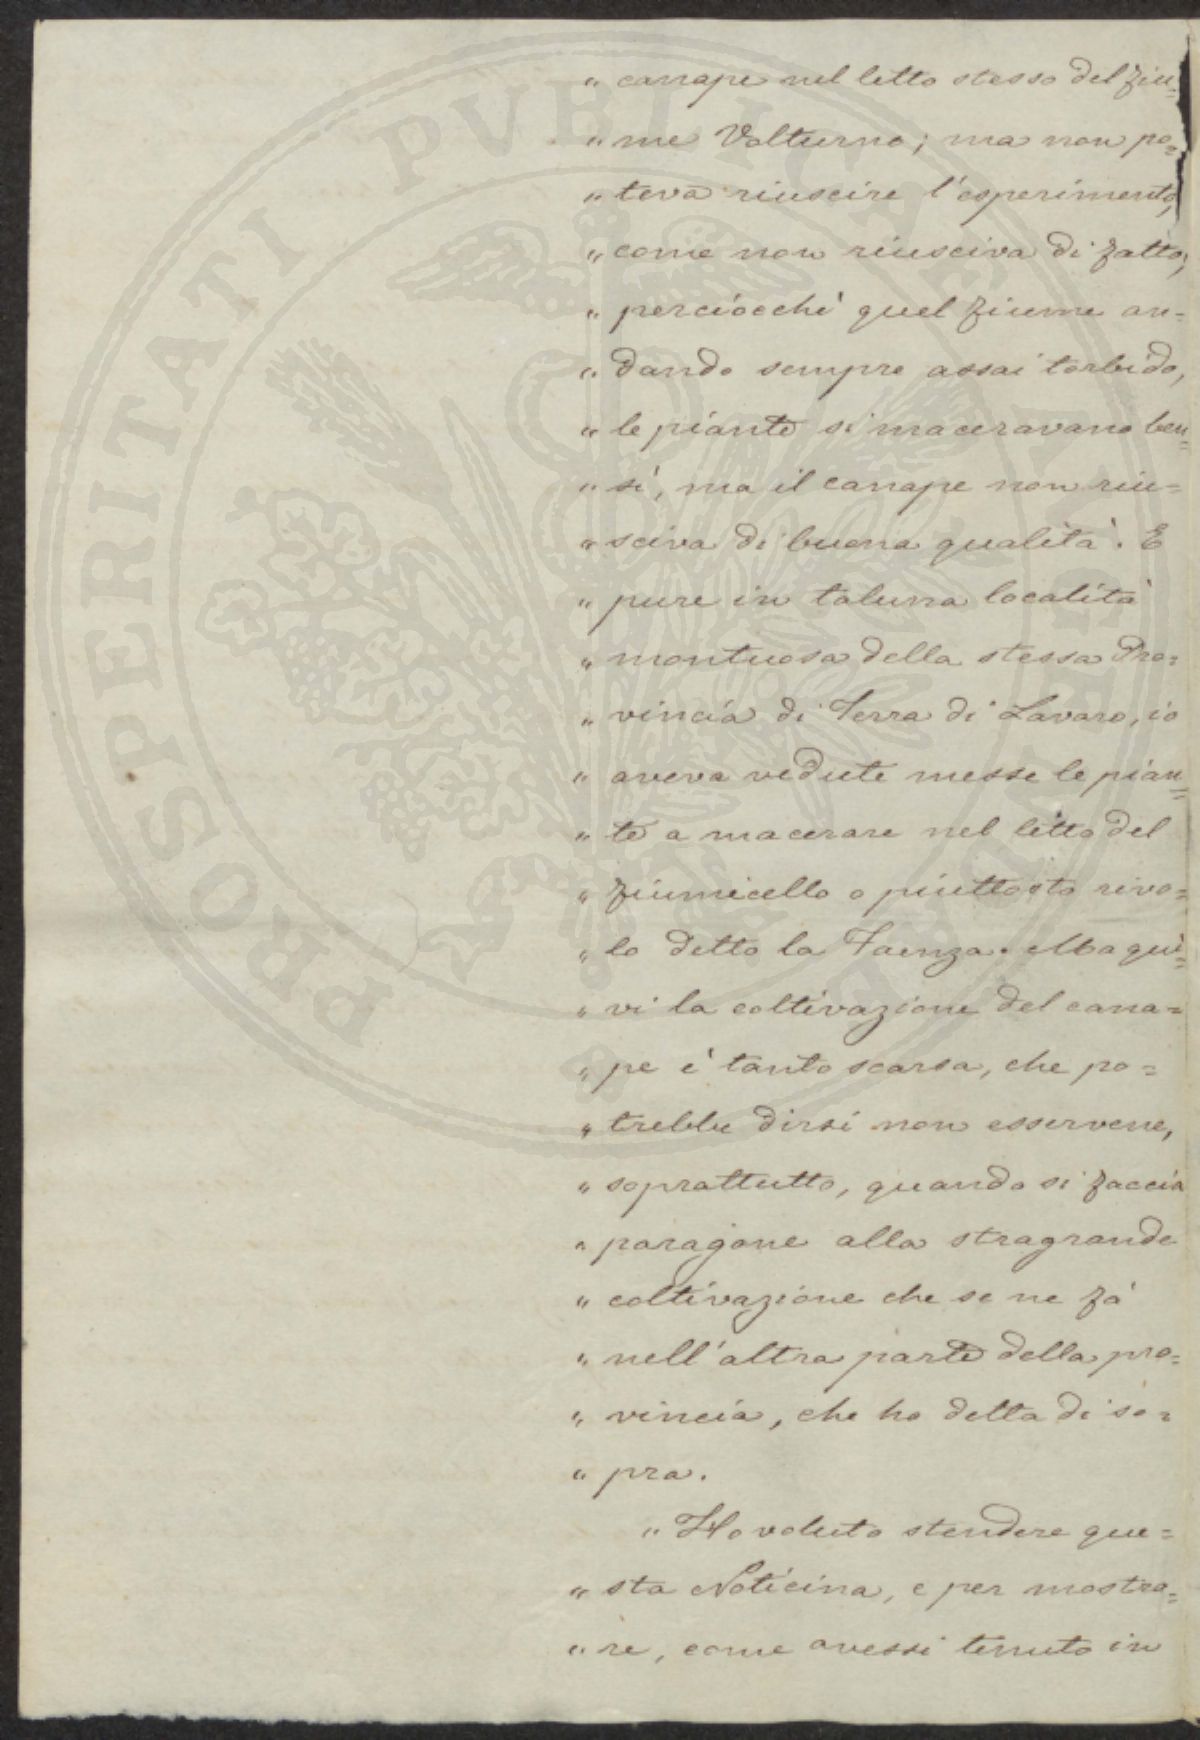 „ canape nel letto stesso del fiu=
„ me Volturno; ma non po=
„ teva riuscire l'esperimento,
„ come non riusciva di fatto;
„ perciocchè quel fiume an-
„ dando sempre assai torbido,
„ le piante si maceravano ben=
„ sì, ma il canape non riu=
„ sciva di buona qualità. E
„ pure in taluna località
„ montuosa della stessa Pro=
„ vincia di Terra di Lavoro, io
„ aveva vedute messe le pian=
„ te a macerare nel letto del
„ fiumicello o piuttosto rivo=
„ lo detto la Faenza. Ma qui=
„ vi la coltivazione del cana=
„ pe è tanto scarsa, che po=
„ trebbe dirsi non esservene,
„ soprattutto, quando si faccia
„ paragone alla stragrande
„ coltivazione che se ne fà
„ nell'altra parte della pro=
„ vincia, che ho detta di so=
„ pra.
„ Ho voluto stendere que=
„ sta Noticina, e per mostra=
„ re, come avessi tenuto in
PROSPERITATI PVBLICAE AVGENDAE